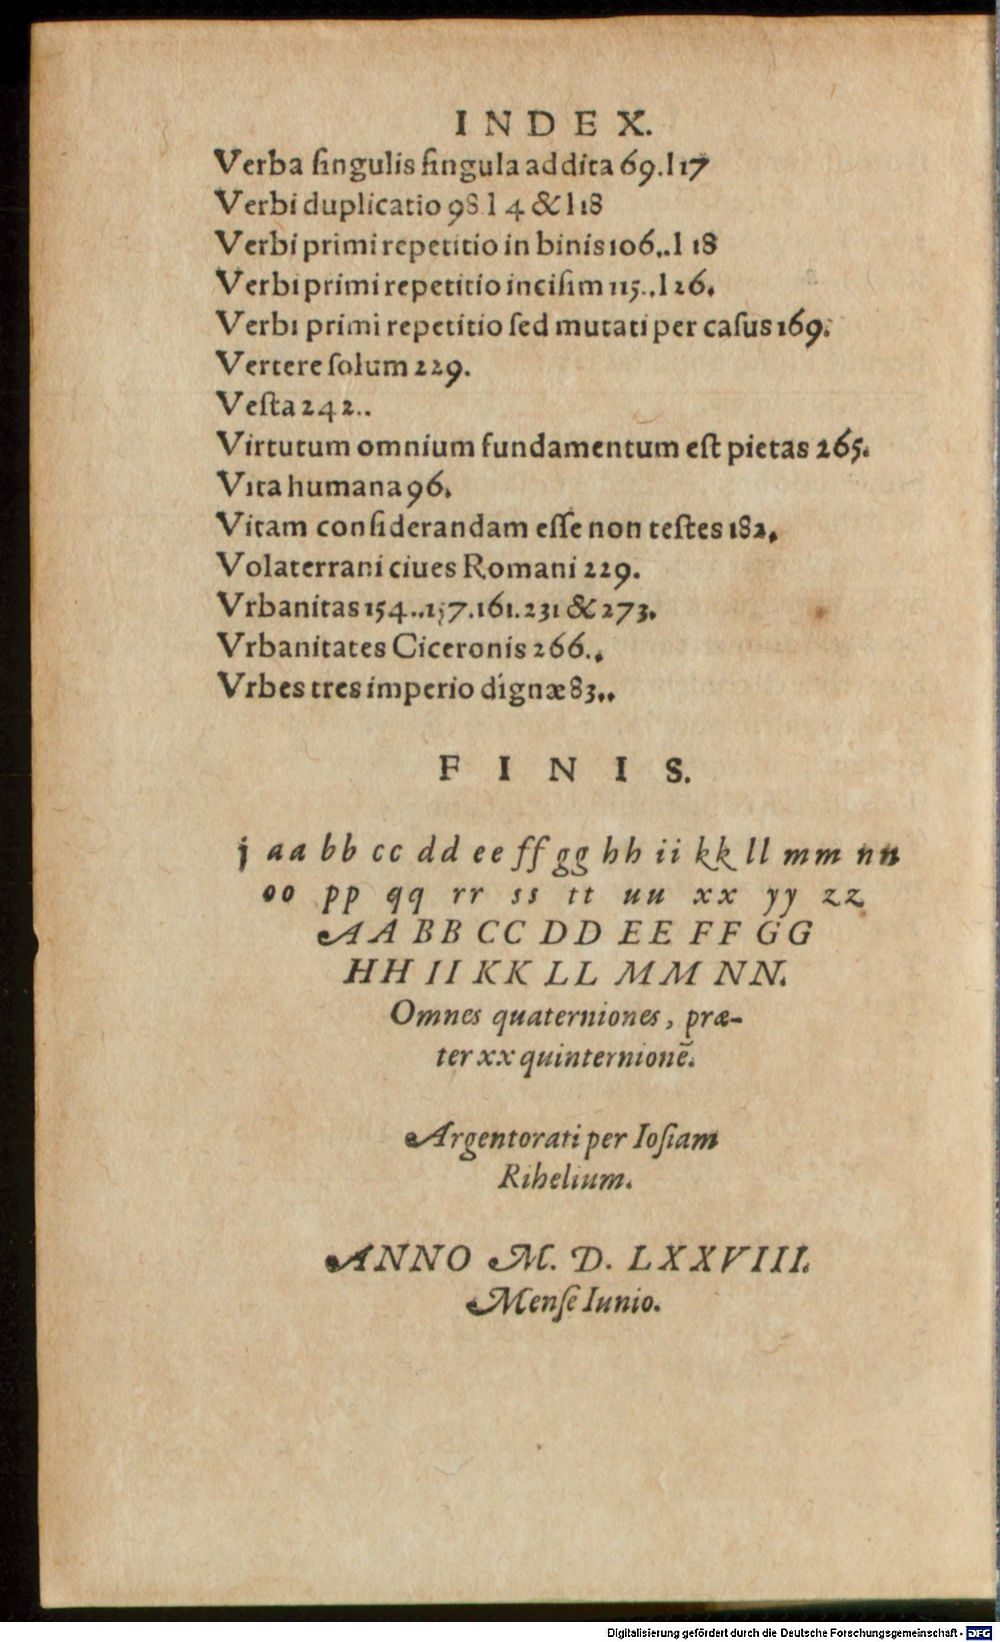 INDEX.
Verba ſingulis ſingula addita 69.l 17
Verbi duplicatio 98 l 4 & l 18
Verbi primi repetitio in binis 106..l 18
Verbi primi repetitio inciſim 115..l 26.
Verbi primi repetitio ſed mutati per caſus 169.
Vertere ſolum 229.
Veſta 242..
Virtutum omnium fundamentum eſt pietas 265.
Vita humana 96.
Vitam conſiderandam eſſe non teſtes 182.
Volaterrani ciues Romani 229.
Vrbanitas 154..157.161.231 & 273.
Vrbanitates Ciceronis 266..
Vrbes tres imperio dignæ 83..
FINIS.
j aa bb cc dd ee ff gg hh ii kk ll mm nn
oo pp qq rr ss tt uu xx yy zz
AA BB CC DD EE FF GG
HH II KK LL MM NN.
Omnes quaterniones, præ-
ter xx quinternionẽ.
Argentorati per Ioſiam
Rihelium.
ANNO M. D. LXXVIII.
Menſe Iunio.
Digitalisierung gefördert durch die Deutsche Forschungsgemeinschaft - DFG